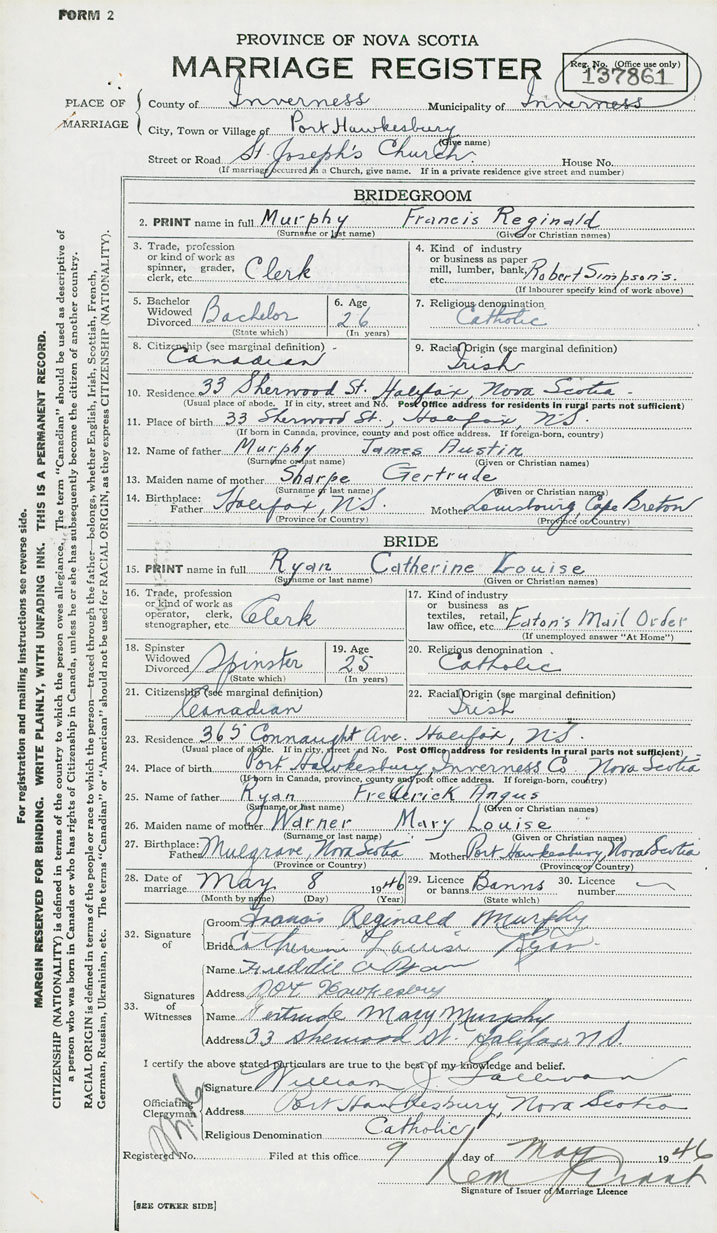 FORM 2
PROVINCE OF NOVA SCOTIA
MARRIAGE REGISTER
Reg. No. (Office use only)
137861
PLACE OF MARRIAGE
County of Inverness Municipality of Inverness
City, Town or Village of Port Hawkesbury
(Give name)
Street or Road St. Joseph's Church. House No.
(If marriage occurred in a Church, give name. If in a private residence give street and number)
BRIDEGROOM
2. PRINT name in full Murphy Francis Reginald
(Surname or last name) (Given or Christian names)
3. Trade, profession or kind of work as spinner, grader, clerk, etc. Clerk
4. Kind of industry or business as paper mill, lumber, bank, etc. Robert Simpson's.
(If labourer specify kind of work above)
5. Bachelor Widowed Divorced Bachelor
(State which)
6. Age 26
(In years)
7. Religious denomination Catholic
8. Citizenship (see marginal definition) Canadian
9. Racial Origin (see marginal definition) Irish
10. Residence 33 Sherwood St. Halifax, Nova Scotia.
(Usual place of abode. If in city, street and No. Post Office address for residents in rural parts not sufficient)
11. Place of birth 33 Sherwood St., Halifax, N.S.
(If born in Canada, province, county and post office address. If foreign-born, country)
12. Name of father Murphy James Austin
(Surname or last name) (Given or Christian names)
13. Maiden name of mother Sharpe Gertrude
(Surname or last name) (Given or Christian names)
14. Birthplace: Father Halifax, N.S. Mother Louisbourg, Cape Breton
(Province or Country) (Province or Country)
BRIDE
15. PRINT name in full Ryan Catherine Louise
(Surname or last name) (Given or Christian names)
16. Trade, profession or kind of work as operator, clerk, stenographer, etc. Clerk
17. Kind of industry or business as textiles, retail, law office, etc. Eaton's Mail Order
(If unemployed answer "At Home")
18. Spinster Widowed Divorced Spinster
(State which)
19. Age 25
(In years)
20. Religious denomination Catholic
21. Citizenship (see marginal definition) Canadian
22. Racial Origin (see marginal definition) Irish
23. Residence 365 Connaught Ave. Halifax, N.S.
(Usual place of abode. If in city, street and No. Post Office address for residents in rural parts not sufficient)
24. Place of birth Port Hawkesbury, Inverness Co. Nova Scotia
(If born in Canada, province, county and post office address. If foreign-born, country)
25. Name of father Ryan Frederick Angus
(Surname or last name) (Given or Christian names)
26. Maiden name of mother Warner Mary Louise
(Surname or last name) (Given or Christian names)
27. Birthplace: Father Mulgrave, Nova Scotia Mother Port Hawkesbury, Nova Scotia
(Province or Country) (Province or Country)
28. Date of marriage May 8 1946
(Month by name) (Day) (Year)
29. Licence or banns Banns
(State which)
30. Licence number
32. Signature of
Groom Francis Reginald Murphy
Bride Catherine Louise Ryan
33. Signatures of Witnesses
Name Freddie Ryan
Address Port Hawkesbury
Name Gertrude Mary Murphy
Address 33 Sherwood St. Halifax N.S.
I certify the above stated particulars are true to the best of my knowledge and belief.
Officiating Clergyman
Signature William J. Gallivan
Address Port Hawkesbury, Nova Scotia
Religious Denomination Catholic
Registered No. Filed at this office 9 day of May 1946
Signature of Issuer of Marriage Licence
[SEE OTHER SIDE]
For registration and mailing instructions see reverse side.
MARGIN RESERVED FOR BINDING. WRITE PLAINLY, WITH UNFADING INK. THIS IS A PERMANENT RECORD.
CITIZENSHIP (NATIONALITY) is defined in terms of the country to which the person owes allegiance. The term "Canadian" should be used as descriptive of
a person who was born in Canada or who has rights of Citizenship in Canada, unless he or she has subsequently become the citizen of another country.
RACIAL ORIGIN is defined in terms of the people or race to which the person—traced through the father—belongs, whether English, Irish, Scottish, French,
German, Russian, Ukrainian, etc. The terms "Canadian" or "American" should not be used for RACIAL ORIGIN, as they express CITIZENSHIP (NATIONALITY).